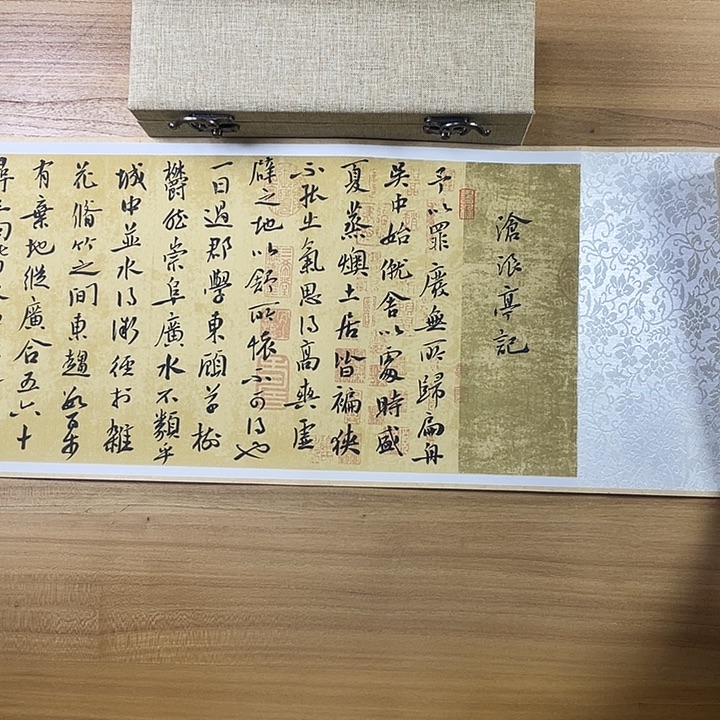 滄浪亭記
予以罪廢無所歸扁舟
吴中始僦舍以處時盛
夏蒸燠土居皆褊狹
不能出氣思得高爽虛
辟之地以舒所懷不可得也
一日過郡學東顧草樹
欝然崇阜廣水不類乎
城中並水得微徑於雜
花脩竹之間東趨數百步
有棄地縱廣合五六十
尋三向皆水